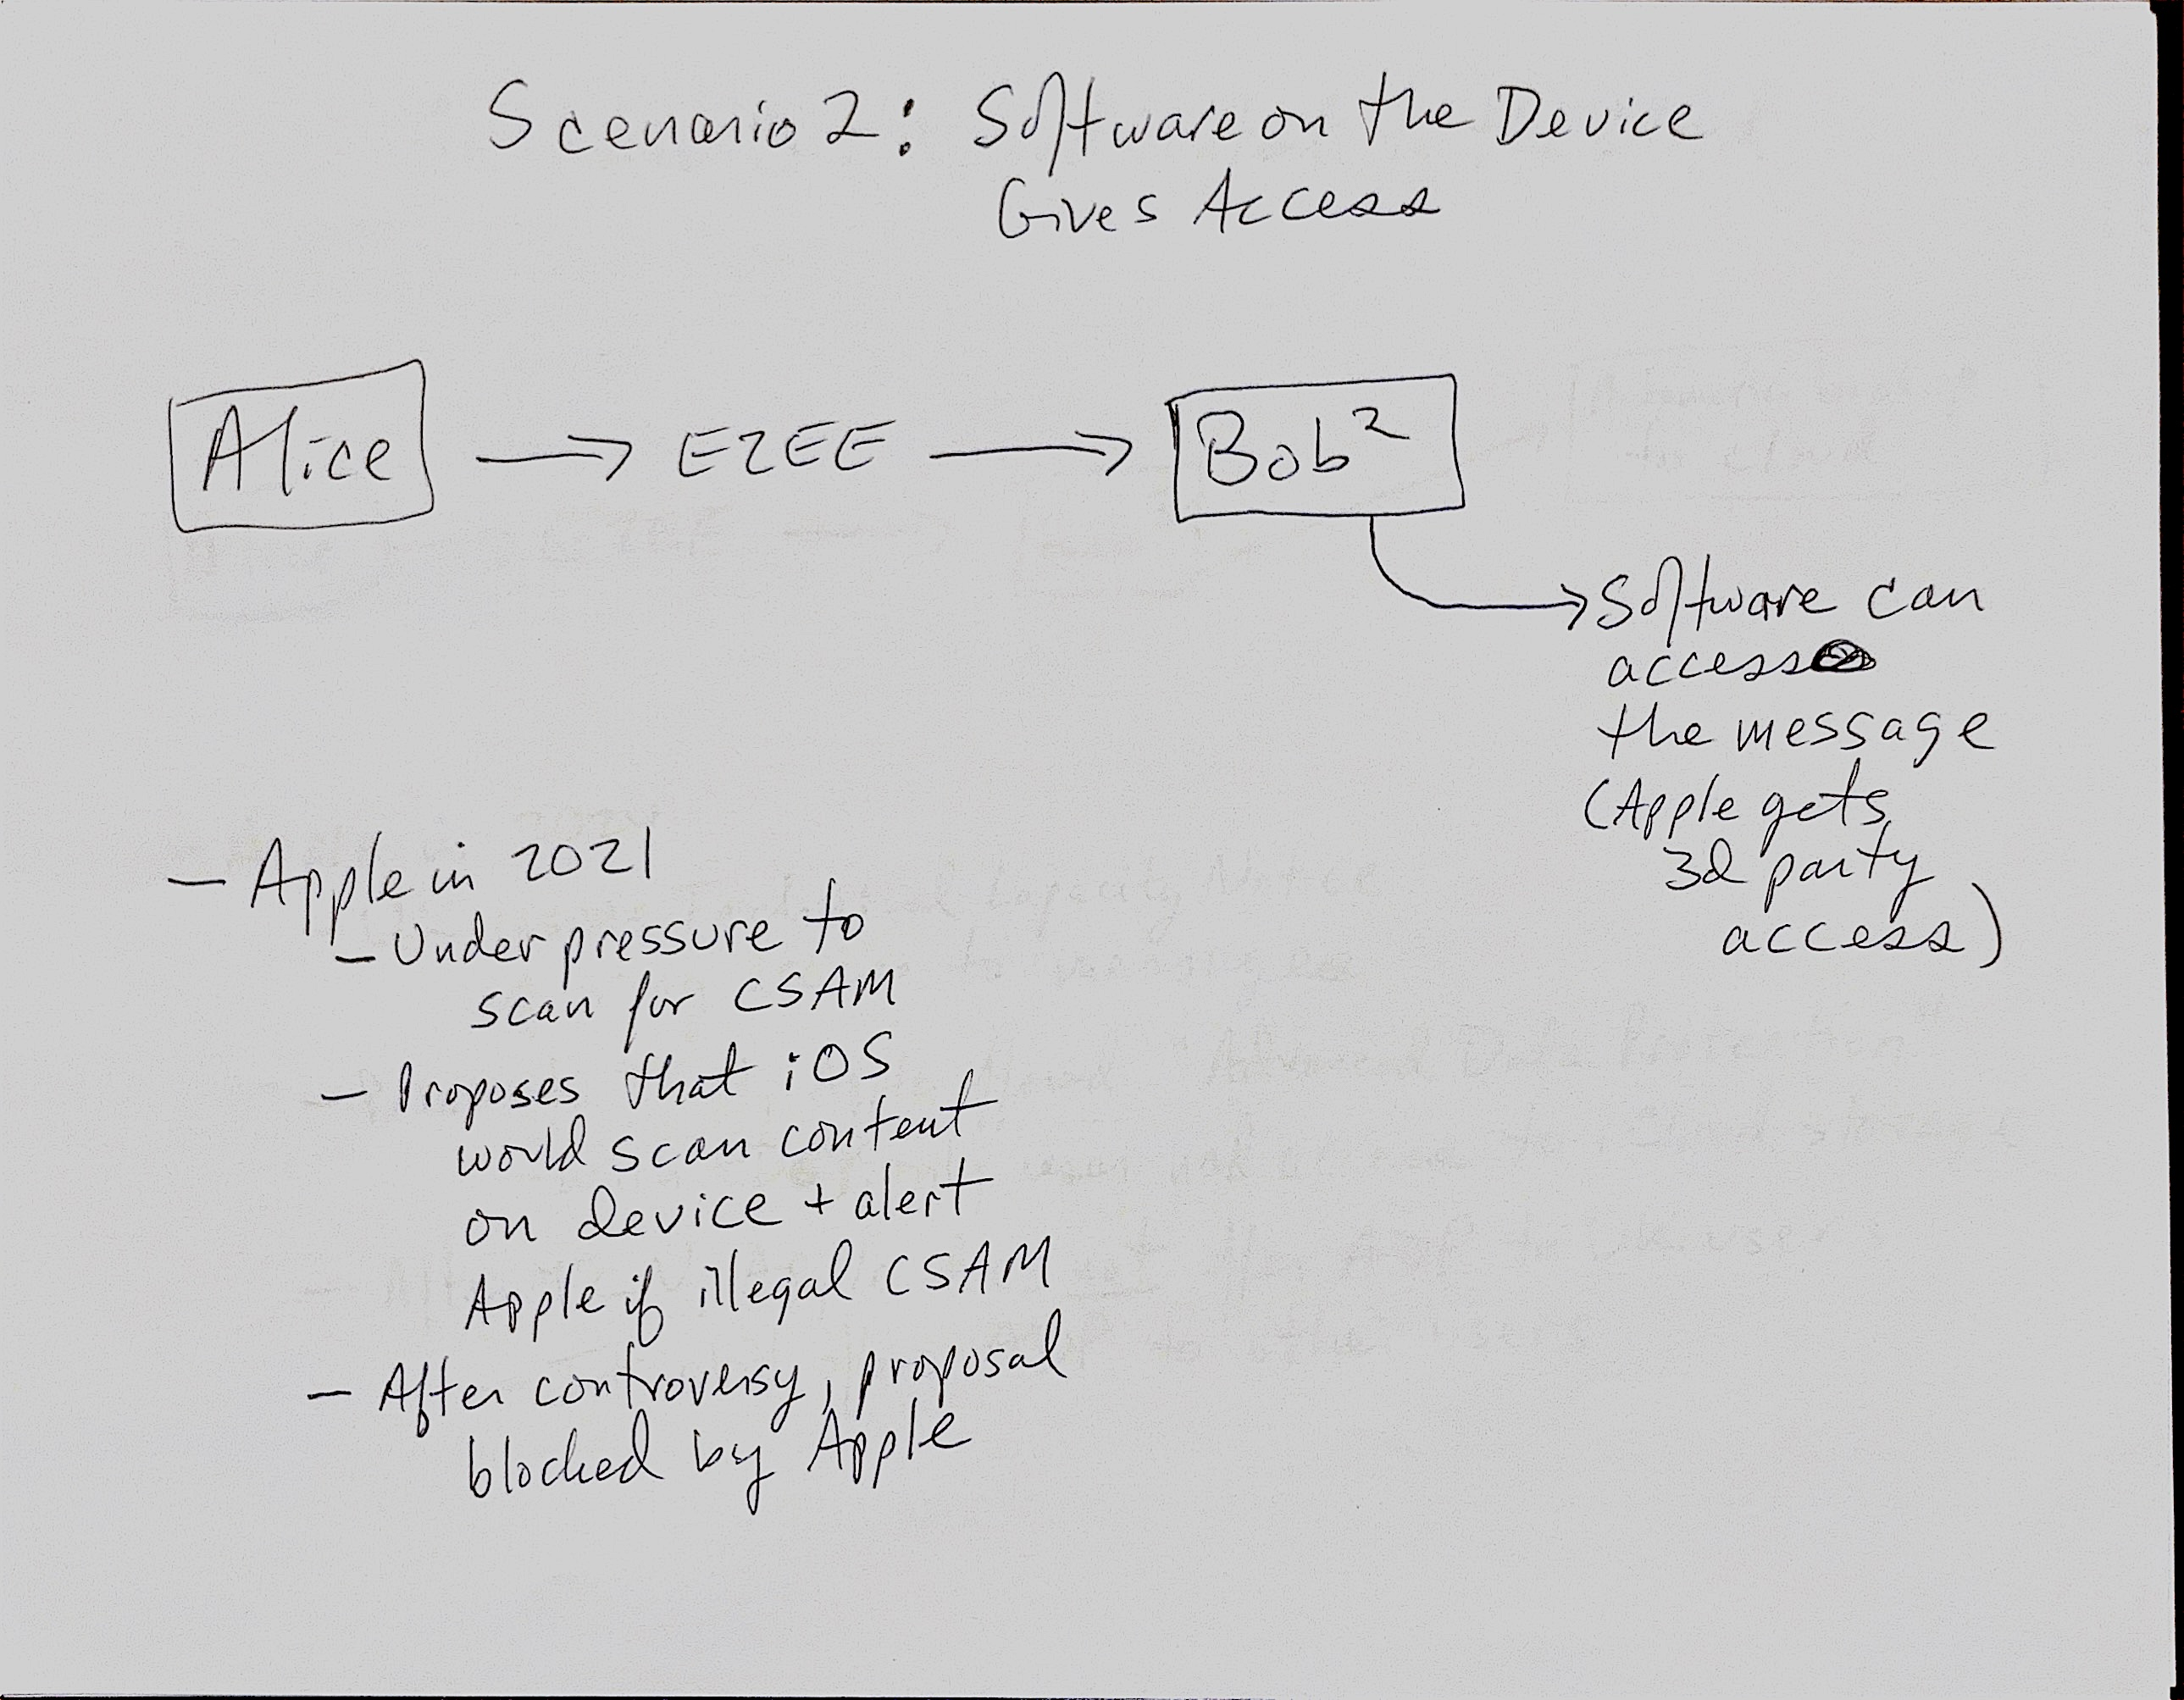 Scenario 2: Software on the Device
Gives Access
Alice → E2EE → Bob²
Software can
access
the message
(Apple gets
3d party
access)
- Apple in 2021
- Under pressure to
scan for CSAM
- Proposes that iOS
would scan content
on device + alert
Apple if illegal CSAM
- After controversy, proposal
blocked by Apple